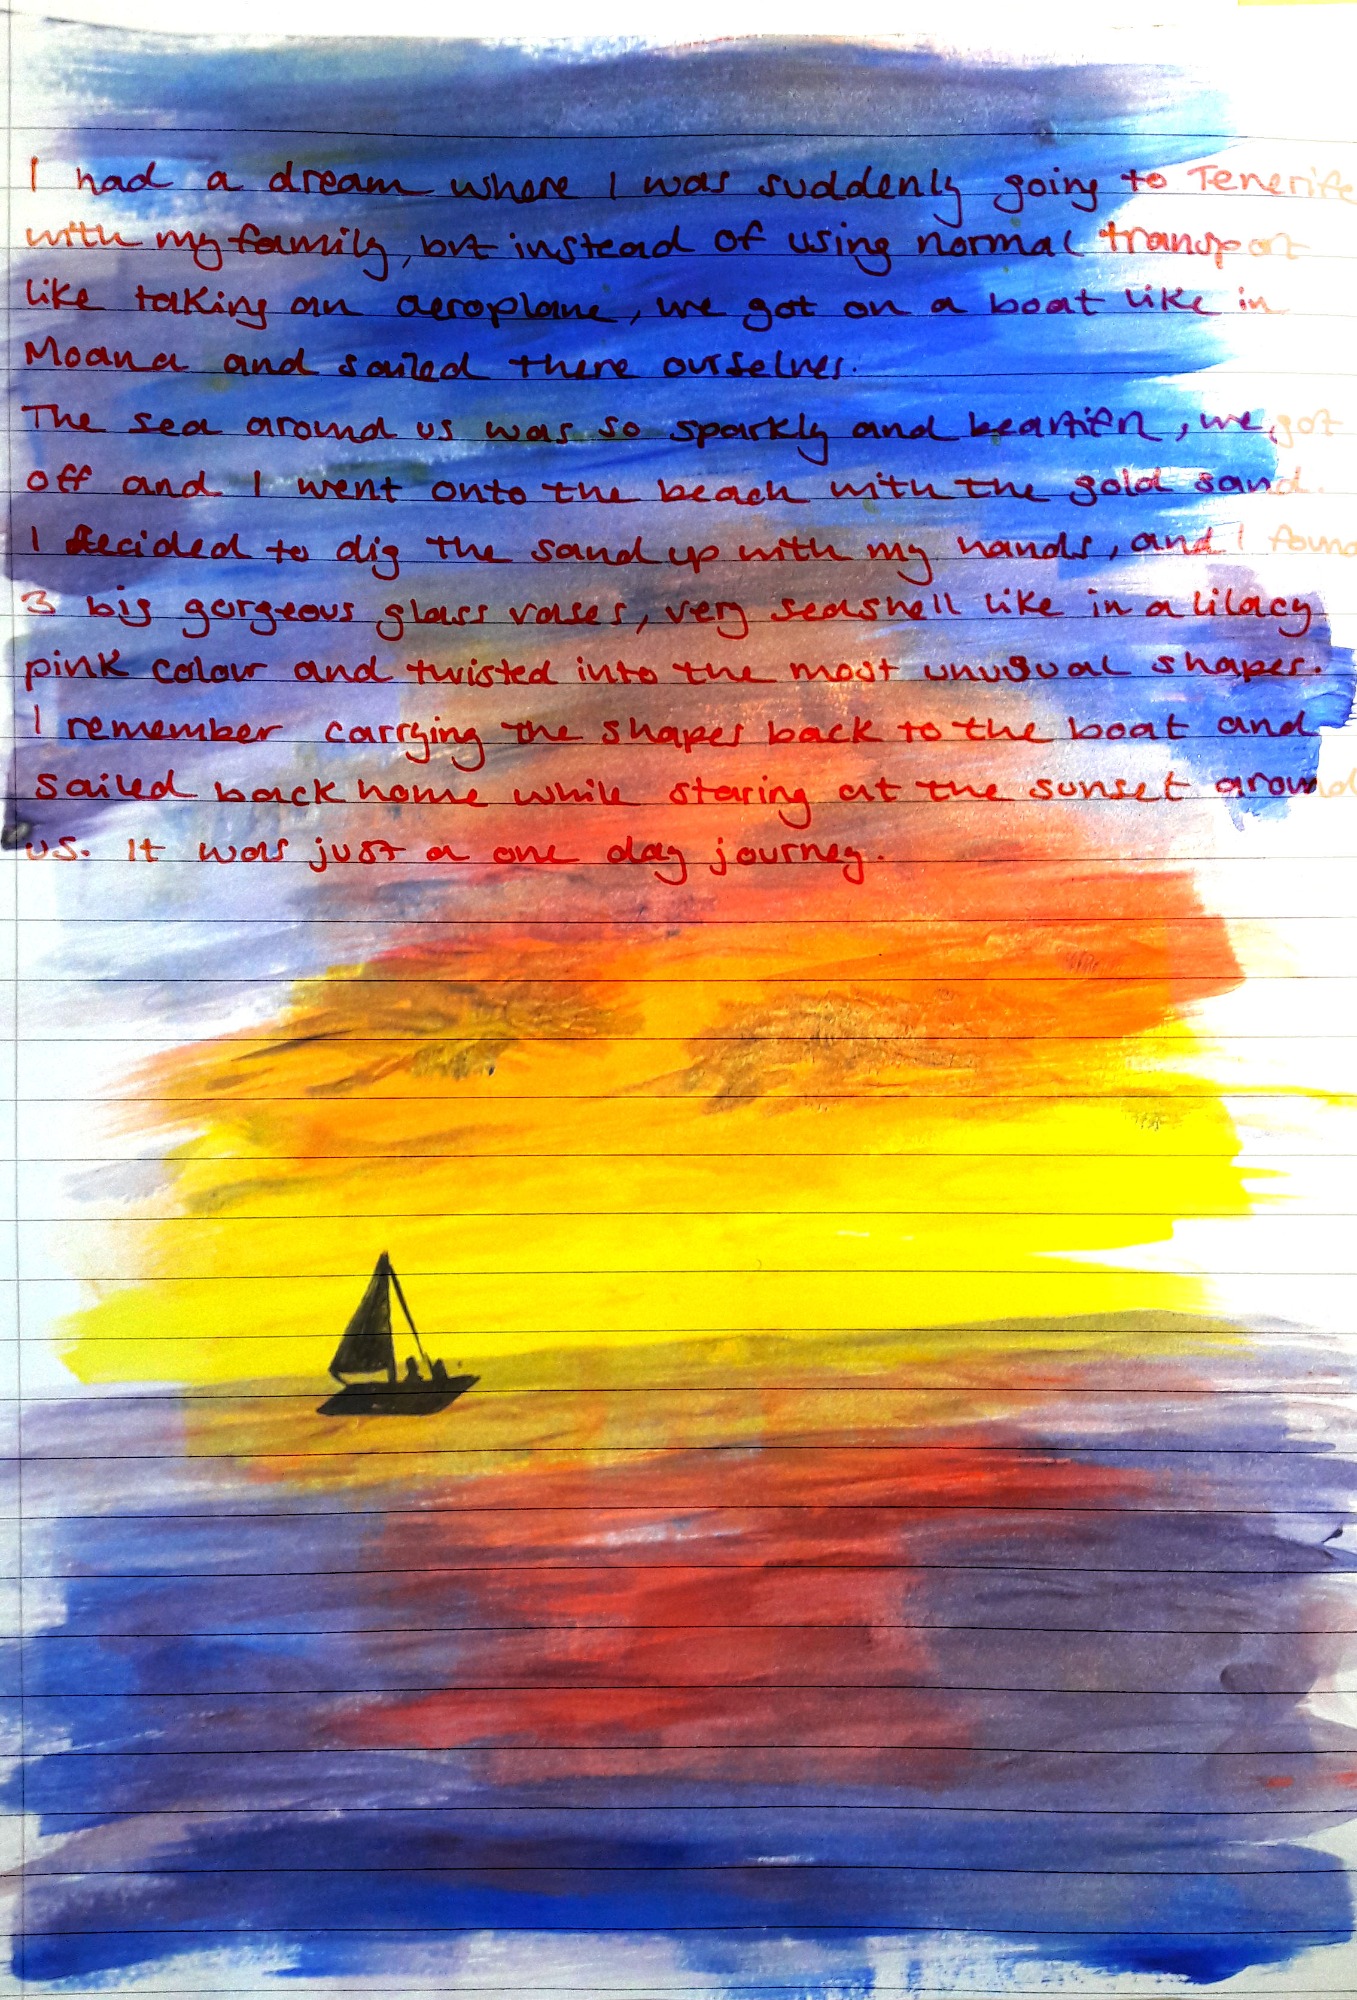 I had a dream where I was suddenly going to Tenerife
with my family, but instead of using normal transport
like taking an aeroplane, we got on a boat like in
Moana and sailed there ourselves.
The sea around us was so sparkly and beautiful, we got
off and I went onto the beach with the gold sand.
I decided to dig the sand up with my hands, and I found
3 big gorgeous glass vases, very seashell like in a lilacy
pink colour and twisted into the most unusual shapes.
I remember carrying the shapes back to the boat and
sailed back home while staring at the sunset around
us. It was just a one day journey.